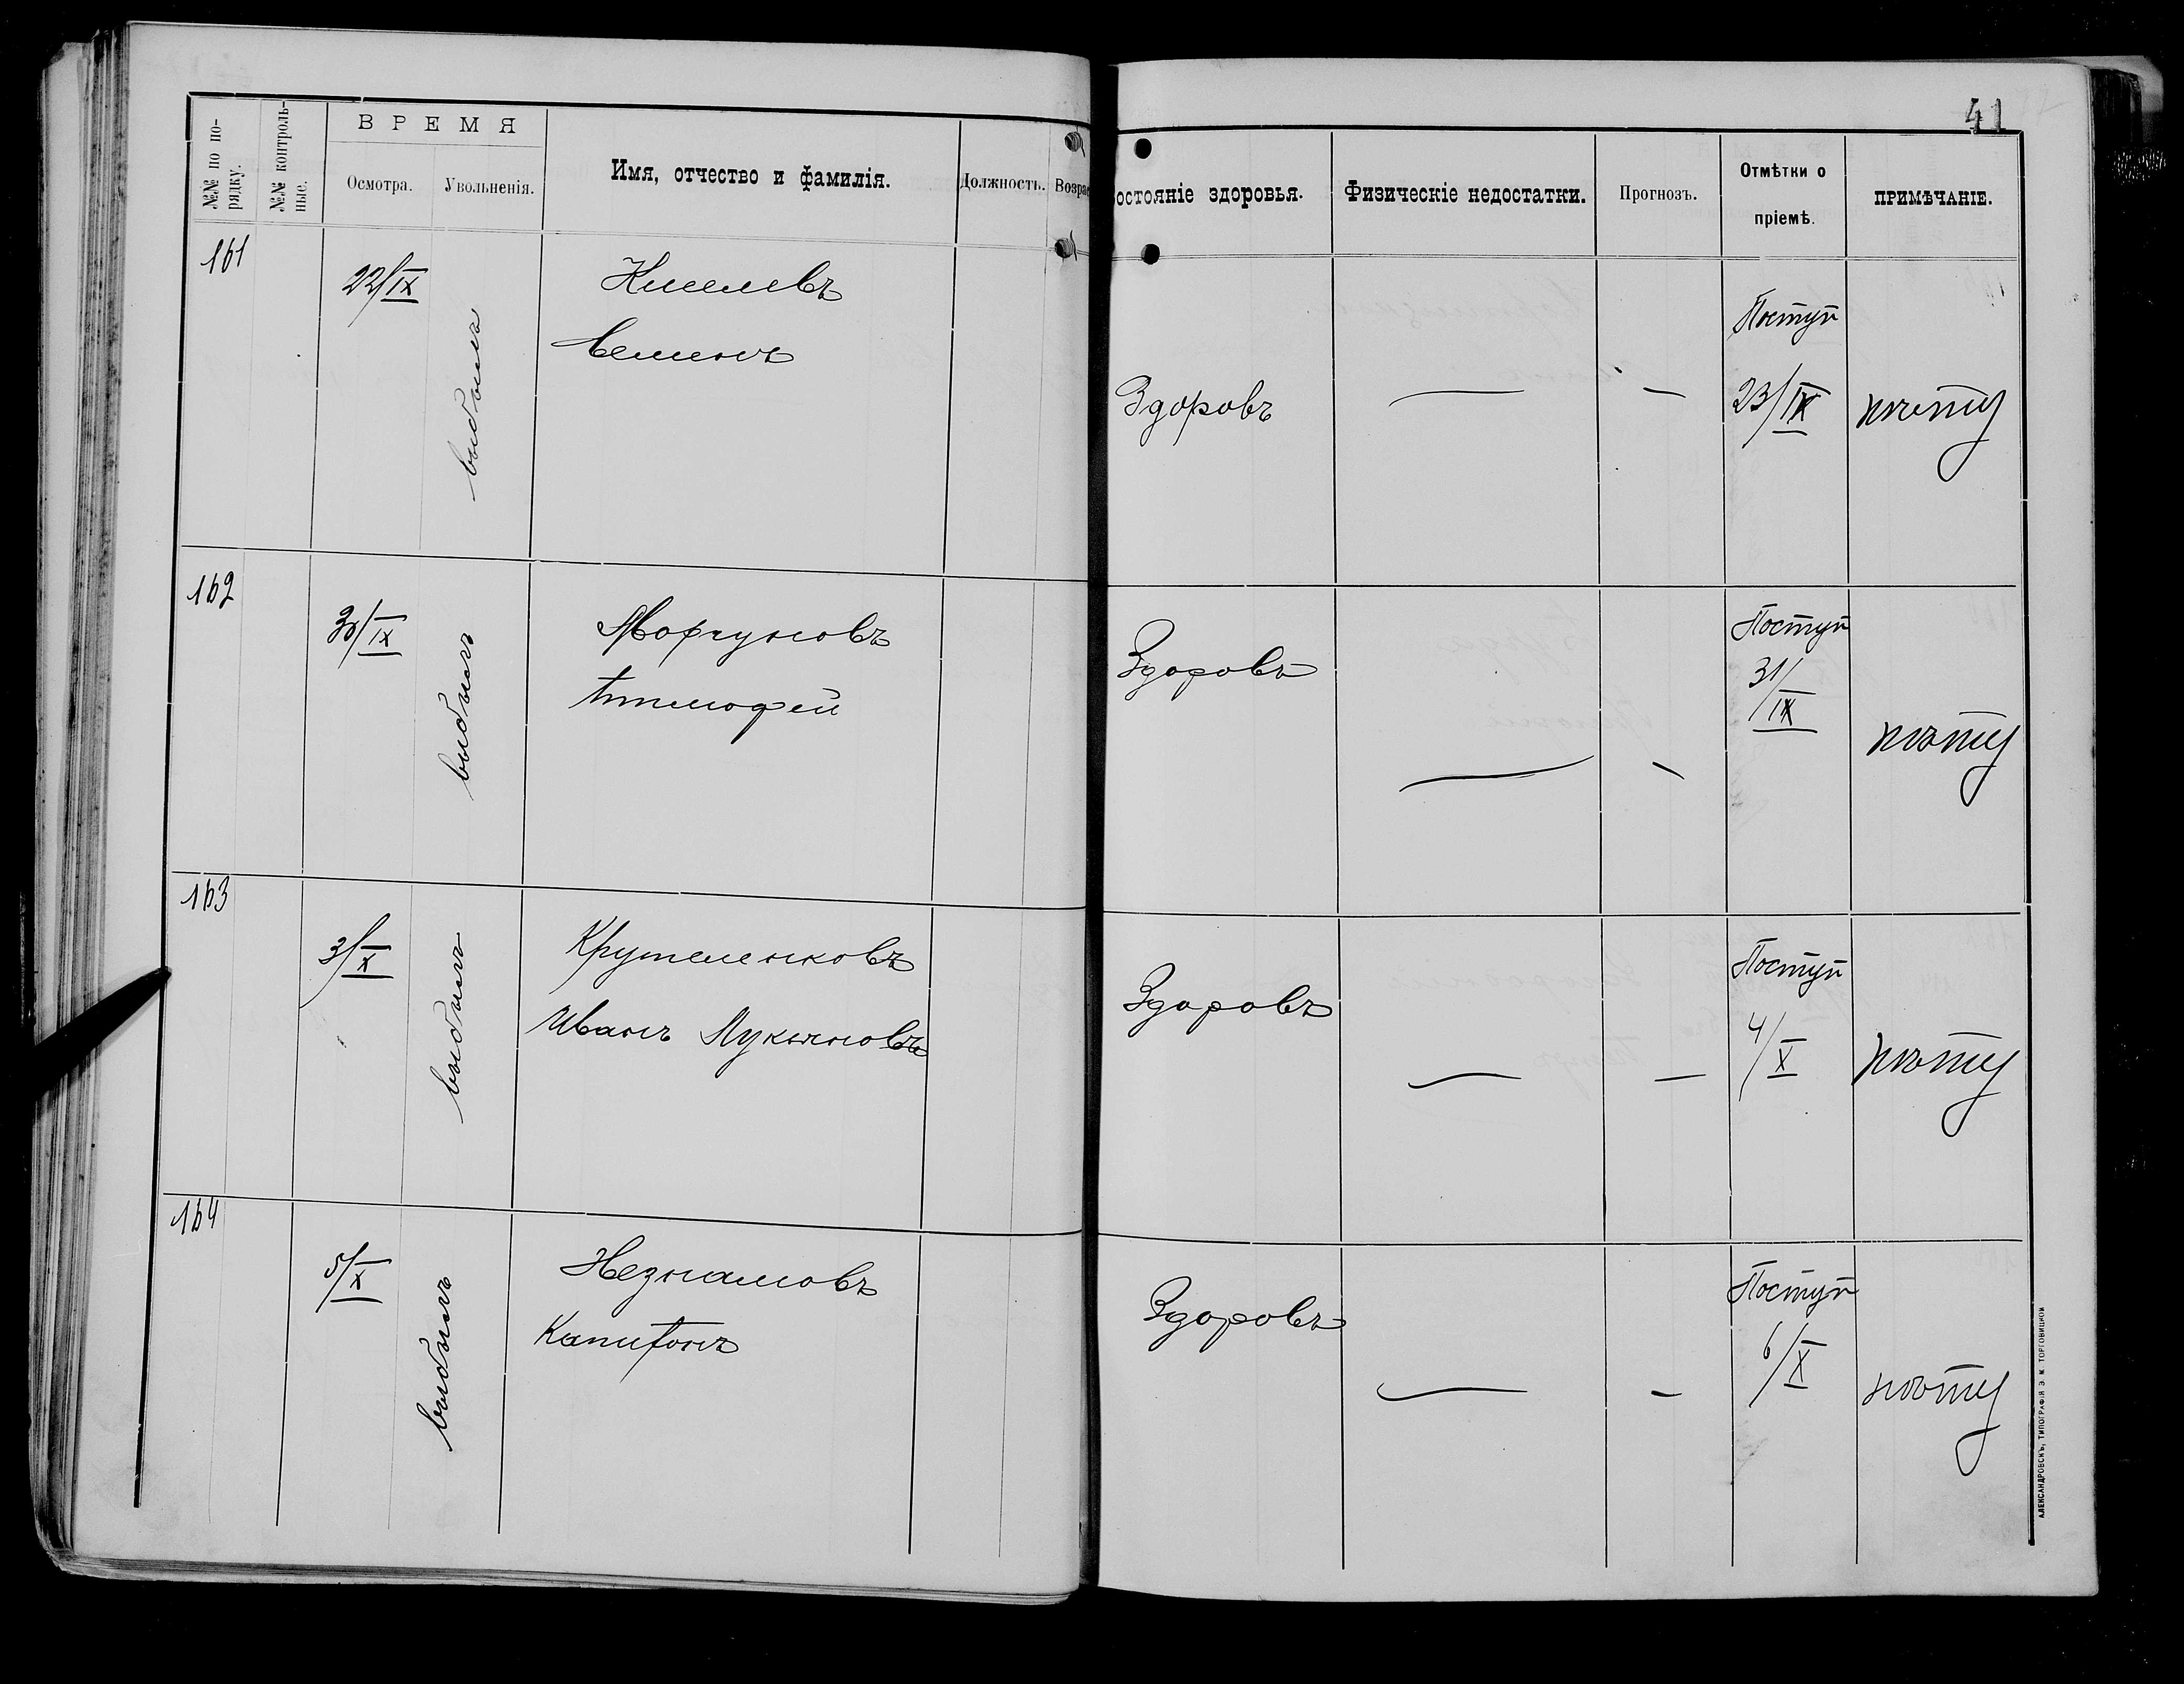 41
№№ по по-
рядку.
№№ контроль-
ные.
ВРЕМЯ
Осмотра.
Увольненія.
Имя, отчество и фамилія.
Должность.
Возрас
остояніе здоровья.
Физическіе недостатки.
Прогнозъ.
Отмѣтки о
пріемѣ.
ПРИМѢЧАНІЕ.
161
22/IX
выбылъ
Киселевъ
Семенъ
Здоровъ
—
—
Поступ
23/IX
162
30/IX
выбылъ
Моргуновъ
Тимофей
Здоровъ
—
—
Поступ
31/IX
163
3/X
выбылъ
Крутеленковъ
Иванъ Лукьяновъ
Здоровъ
—
—
Поступ
4/X
164
5/X
выбылъ
Незнамовъ
Капитонъ
Здоровъ
—
—
Поступ
6/X
АЛЕКСАНДРОВСКЪ, ТИПОГРАФІЯ Э. М. ТОРГОВИЦКОЙ